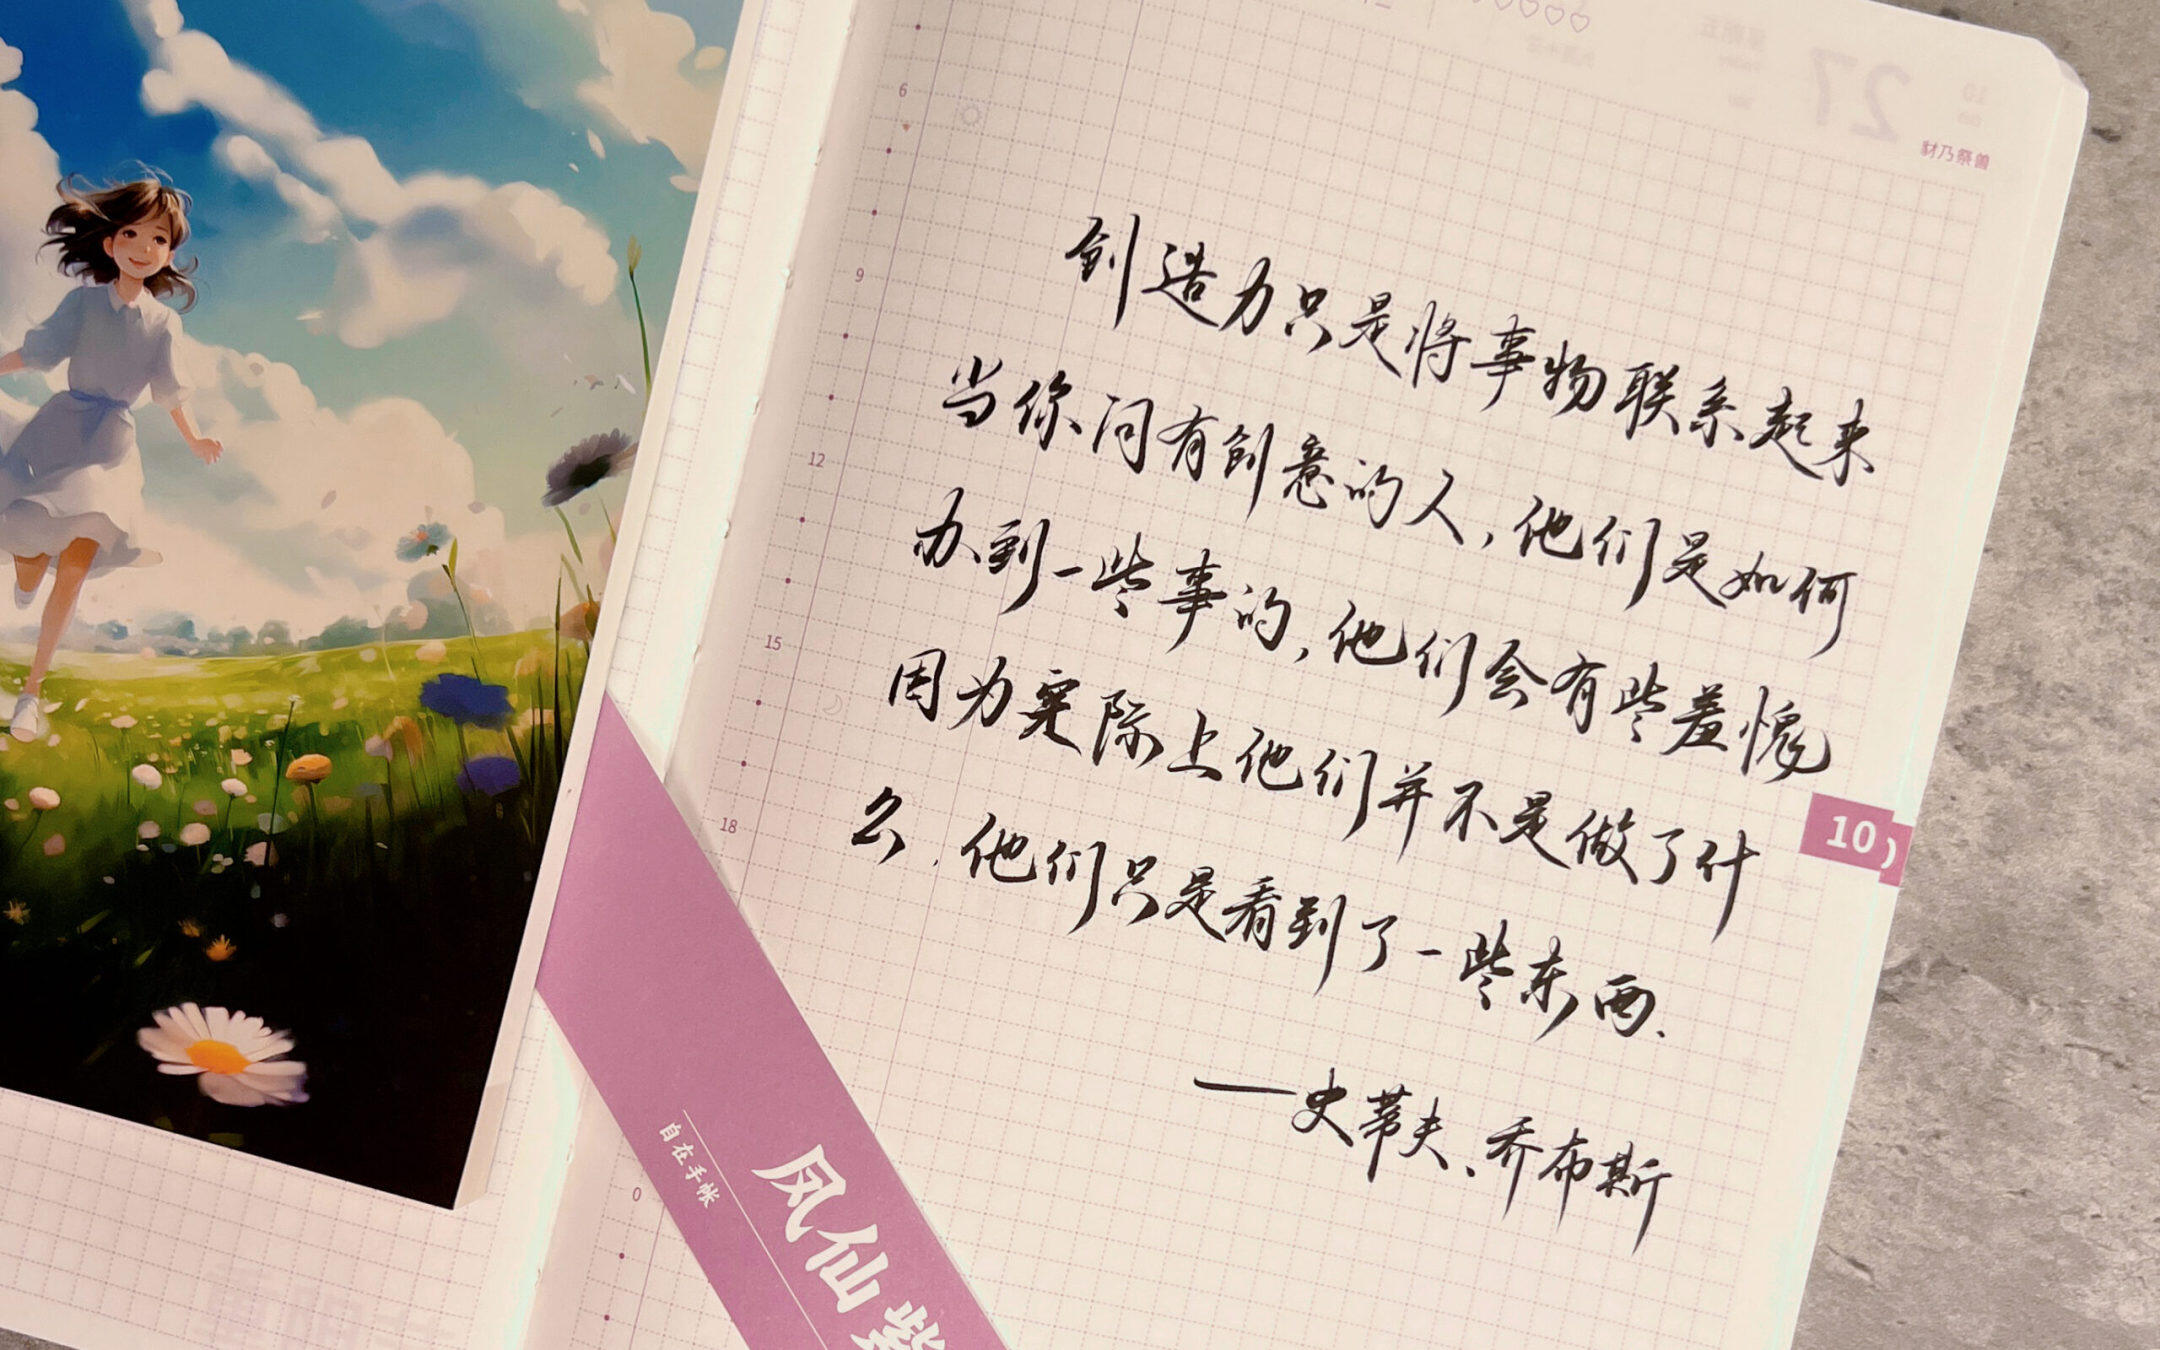 豺乃祭兽
27
6
9
12
15
18
0
创造力只是将事物联系起来
当你问有创意的人,他们是如何
办到一些事的,他们会有些羞愧
因为实际上他们并不是做了什
么.他们只是看到了一些东西.
——史蒂夫、乔布斯
10
自在手帐
凤仙紫